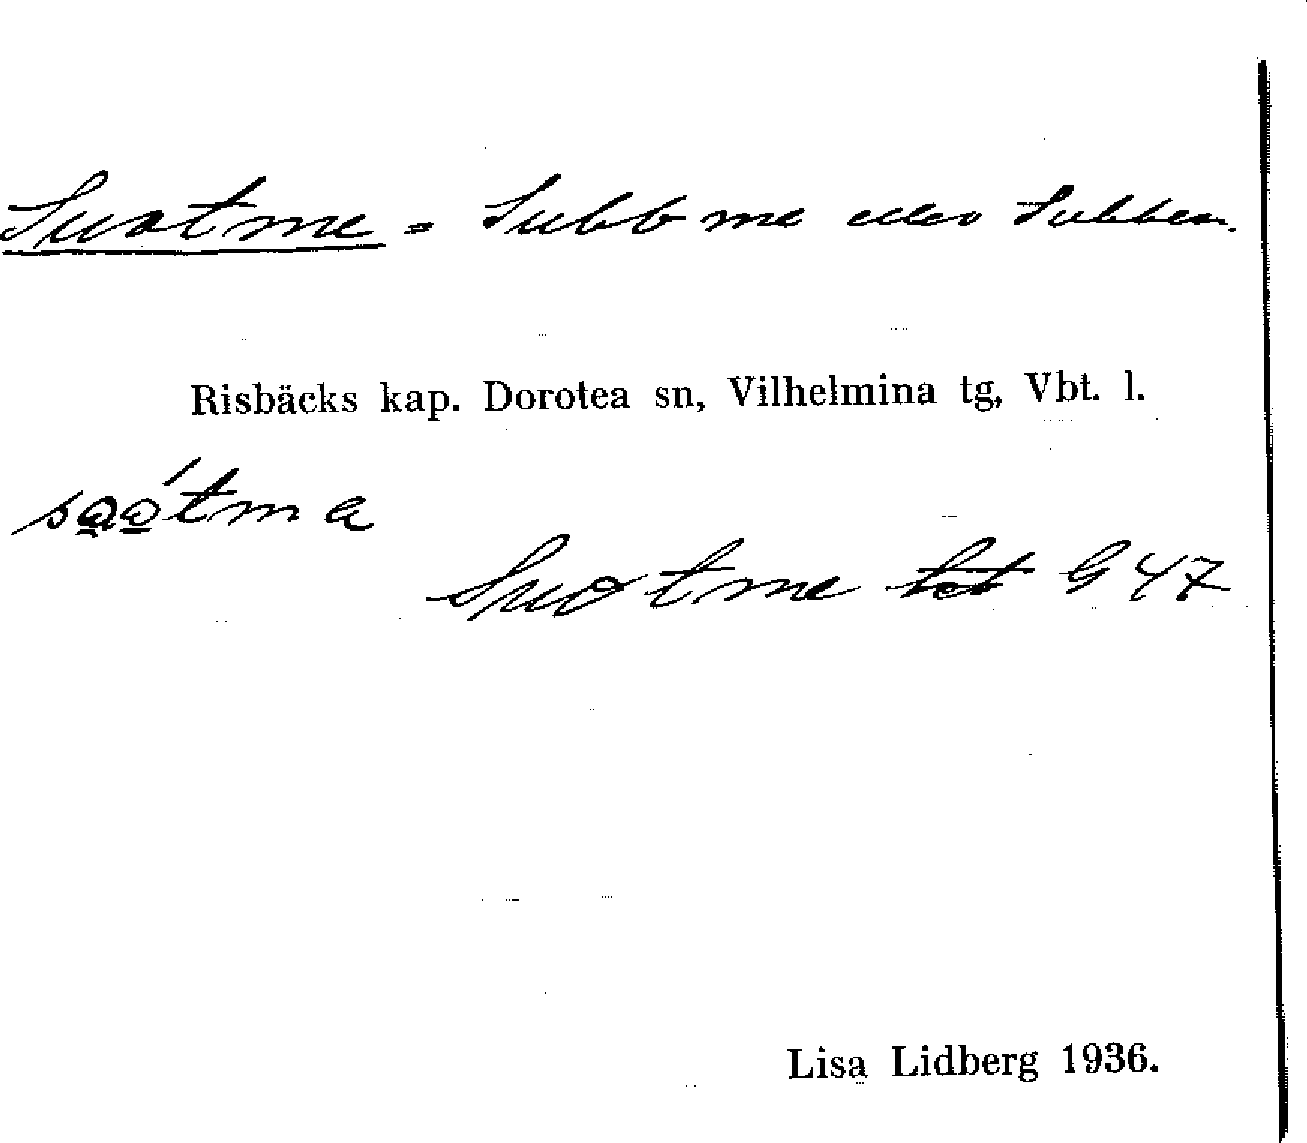 Suotme = Subbme eller Subben.
Risbäcks kap. Dorotea sn, Vilhelmina tg, Vbt. l.
sǫǫ́tma
Suotme G 47
Lisa Lidberg 1936.